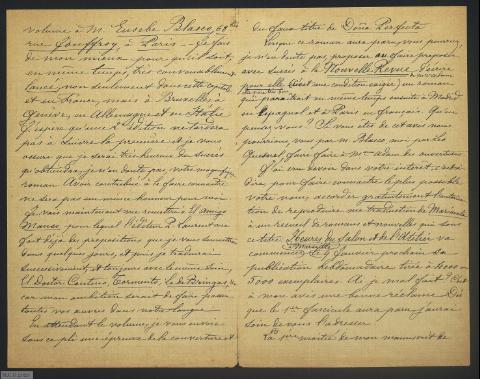 volume à M. Eusebe Blasco, 68 bis
rue Jouffroy, à Paris. — Je fais
de mon mieux pour qu'il soit,
en même temps, très convenablement
lancé, non seulement dans cette capitale
et en France, mais à Bruxelles, à
Genève, en Allemagne et en Italie.
J'espère qu'une 2e édition ne tardera
pas à suivre la première et je vous
assure que je serai très heureux du succès
qu'obtiendra, je n'en doute pas, votre magnifique
roman. Avoir contribué à le faire connaître
ne sera pas un mince honneur pour moi.
Je vais maintenant me remettre à El Amigo
Manso, pour lequel l'éditeur P. Laurent me
fait déjà des propositions que je vous soumettrai
dans quelques jours, et puis je traduirai
successivement, et toujours avec le même soin,
El Doctor Centeno, Tormento, La de Bringas, &
car mon ambition serait de faire passer
toutes vos œuvres dans notre langue.
En attendant le volume, je vous envoie
sous ce pli une épreuve de la couverture et
du faux titre de Doña Perfecta.
Lorsque ce roman aura paru, vous pourrez,
je n'en doute pas, proposer ou faire proposer
avec succès à la Nouvelle Revue, d'écrire
pour elle (c'est une condition exigée) un roman
qui paraîtrait en même temps ensuite à Madrid
en espagnol et à Paris en français. Qu'en
pensez-vous? Si vous êtes de cet avis nous
pourrions, vous par M. Blasco, moi par les
Quesnel, faire faire à Mme Adam les ouvertures.
J'ai cru devoir dans votre intérêt, c'est à
dire pour faire connaître le plus possible
votre nom, accorder gratuitement l'autorisa-
tion de reproduire ma traduction de Marianela
à un recueil de romans et nouvelles qui sous
ce titre Heures du Salon et de l'Atelier va
commencer le 9 Janvier prochain sa
publication hebdomadaire tirée à 4000 ou
5000 exemplaires. Ai-je mal fait? C'est
à mon avis une bonne réclame. Dès
que le 1er fascicule aura paru j'aurai
soin de vous l'adresser.
La 1ère moitié de mon manuscrit de